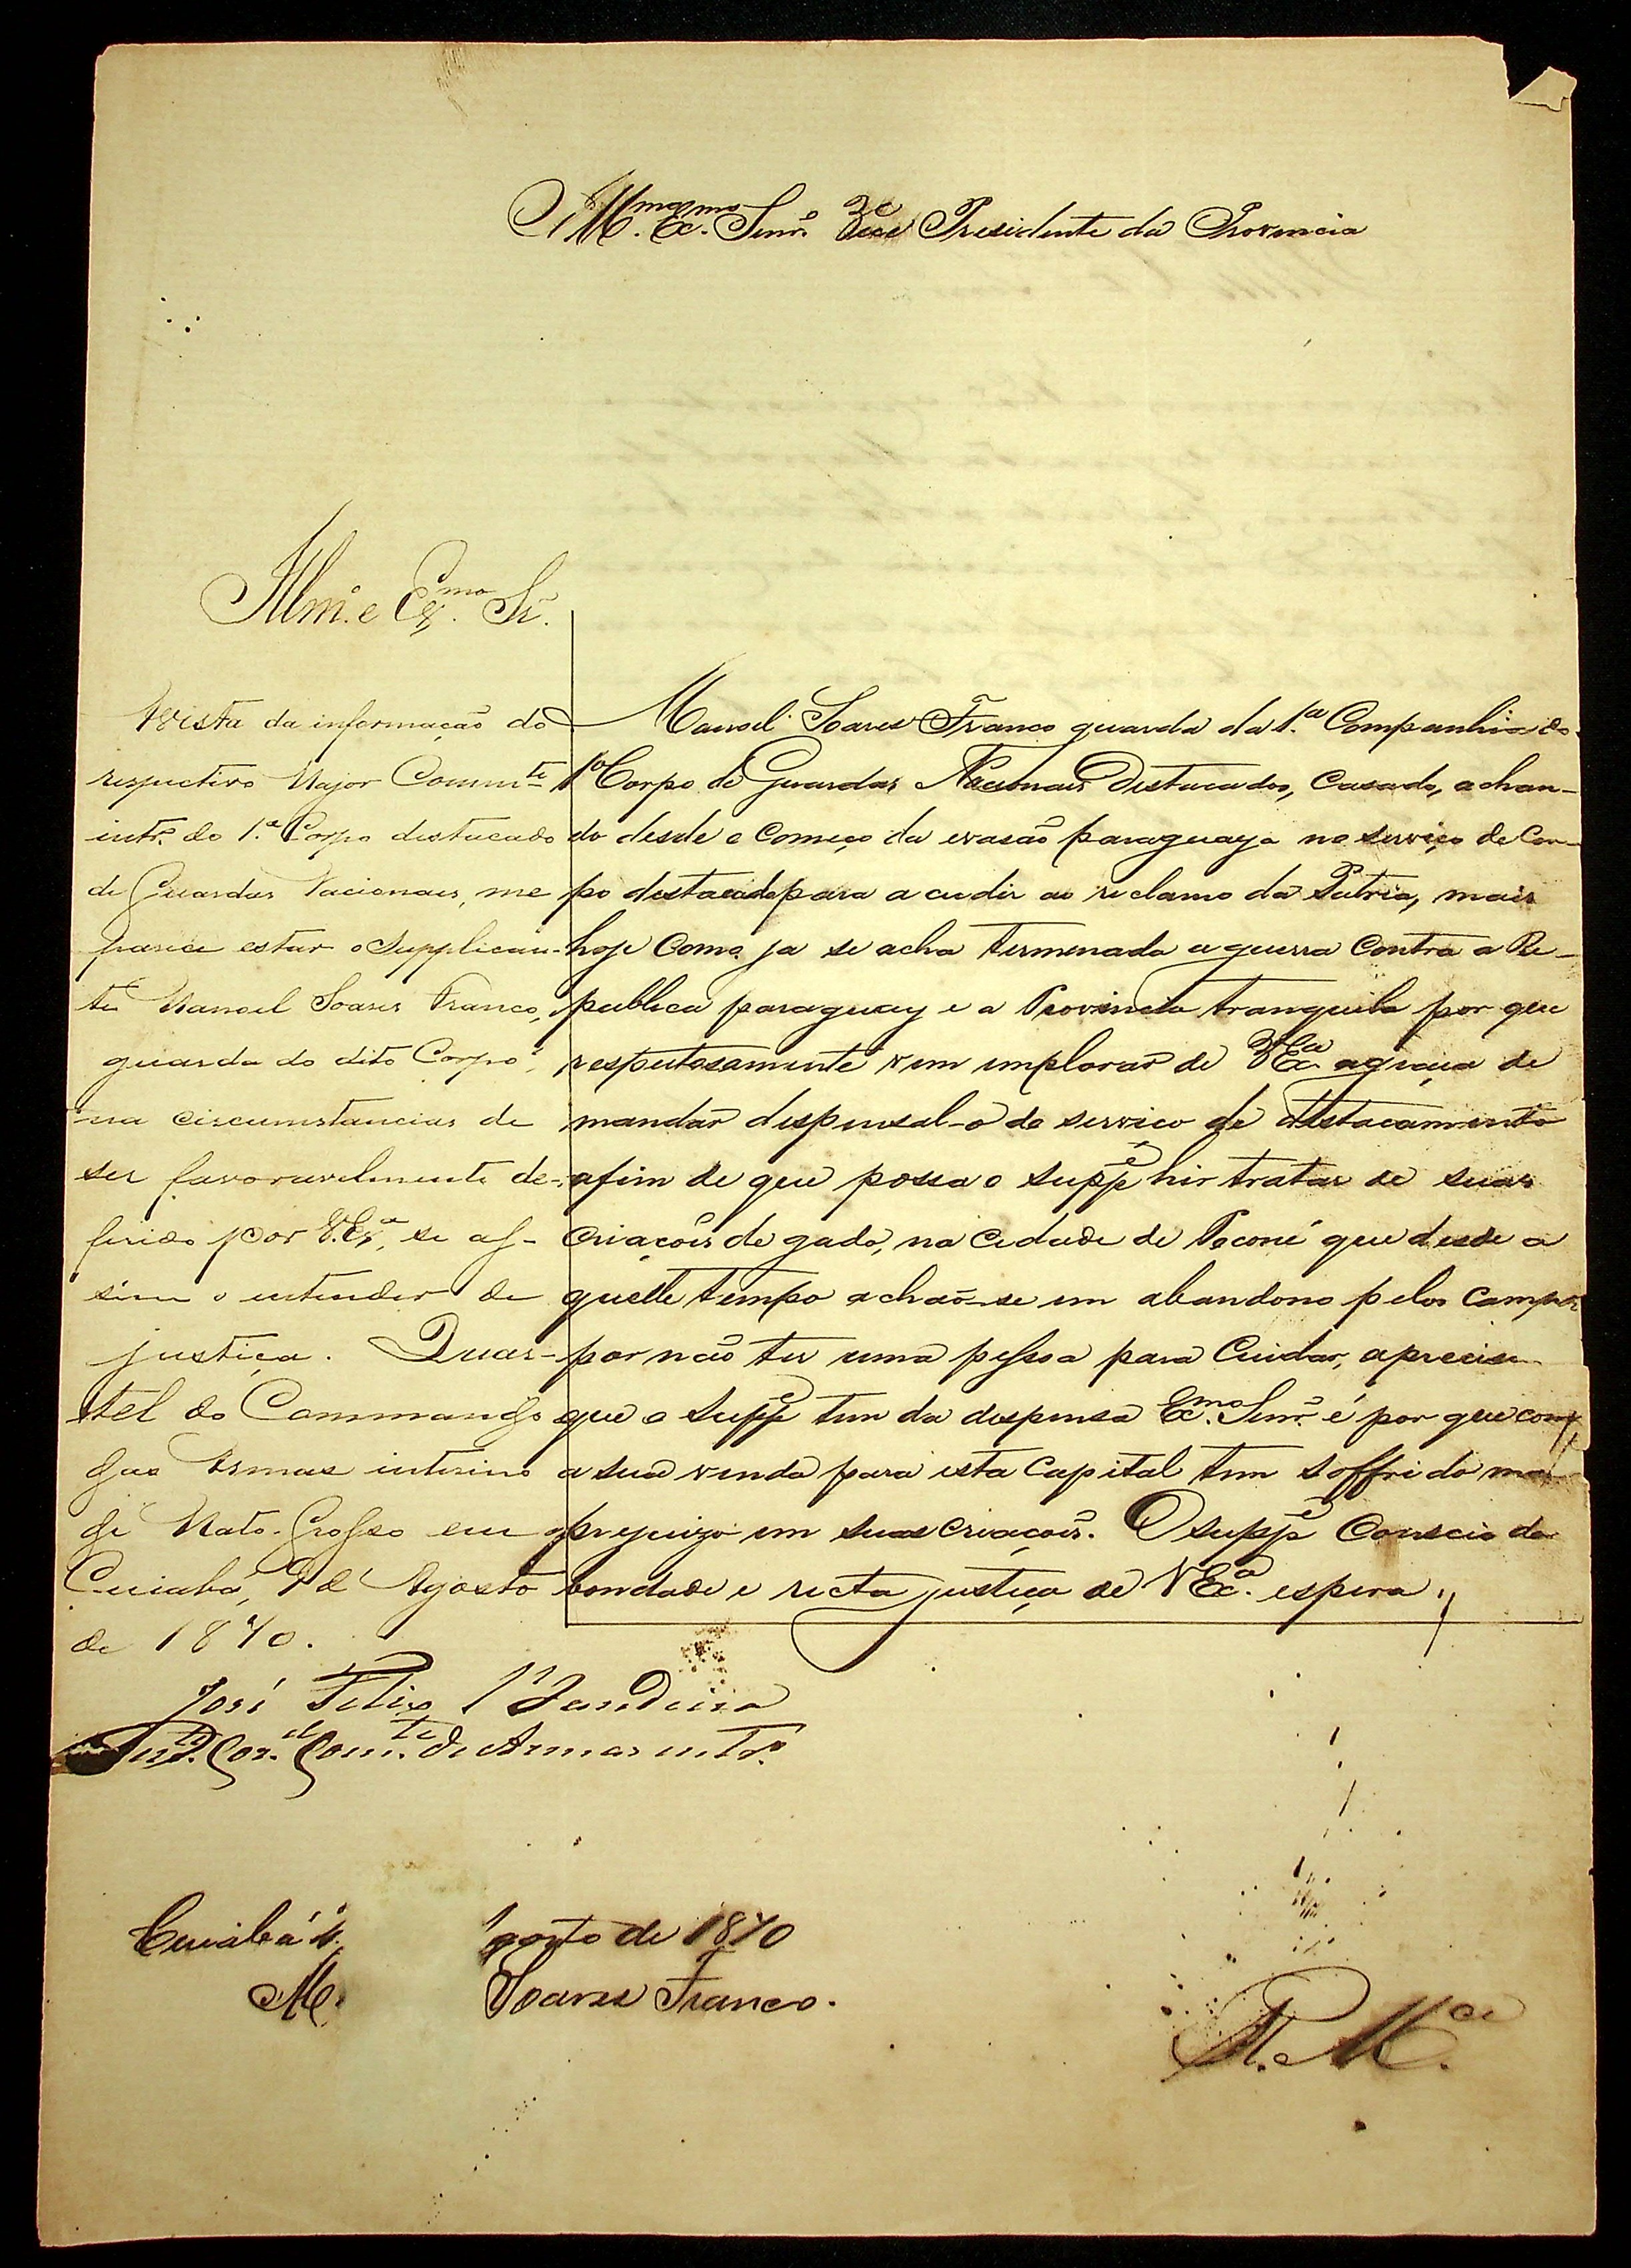 Illmº. Exmo. Senr. Vice Presidente da Provincia
Illmº. e Exmo. Sr.
Vista da informação do
respectivo Major Commte
intrº. do 1.º Corpo destacado
de Guardas Nacionaes, me
parece estar o Supplican-
te Manoel Soares Franco,
guarda do dito Corpo,
na circumstancias de
ser favoravelmente de-
ferido por V.Exª, se as-
sim o entender de
justiça. Quar-
tel do Commando
das Armas interino
de Mato-Grosso em
Cuiabá, 9 de Agosto
de 1870.
José Felix Bandeira
Tente. Cor.el Com.te de Armas intrº.
Manoel Soares Franco guarda da 1.ª Companhia do
1º Corpo de Guardas Nacionais Destacados, Casado, achan-
do desde o começo da evasão paraguaya no serviço de Cor-
po destacado para acudir ao reclamo da Patria, mais
hoje como ja se acha termenada a guerra contra a Re-
publica paraguay e a Provincia tranquila por que
respeitosamente vem implorar de VExª a graça de
mandar dispensal-o do serviço de destacamento
afim de que possa o suppe hir tratar de suas
criaçoẽs de gado, na cidade de Poconé que desde a
quelle tempo achaõ-se em abandono pelos campos
por não ter uma pessoa para cuidar, a precisa
que o suppe tem da dispensa Exmo. Senr. é por que com
a sua venda para esta Capital tem soffrido
prejuizo em suas criaçoẽs. O suppe Conscio da
bondade e recta justiça de VExª. espera.
Cuiabá Agosto de 1870
M. Soares Franco.
R. Mce.